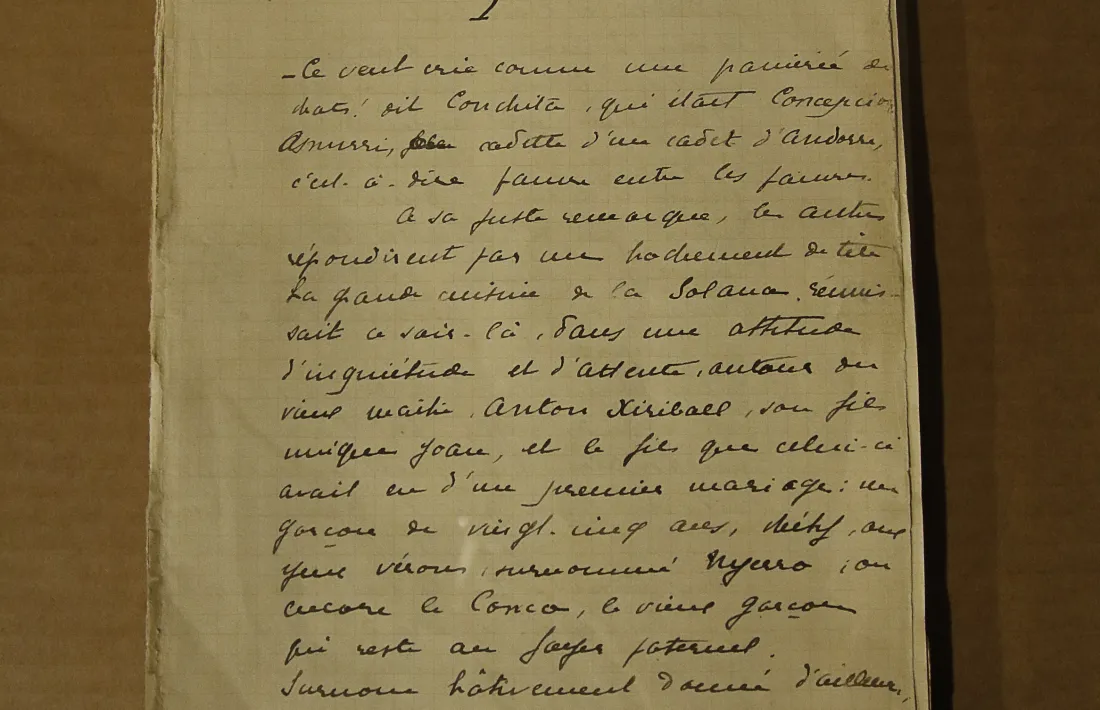 I
— Ce vent crie comme une panièrée de
chats! dit Conchita, qui était Concepcion
Asnurri, cadette d'un cadet d'Andorre,
c'est-à-dire pauvre entre les pauvres.
A sa juste remarque, les autres
répondirent par un hochement de tête
La grande cuisine de la Solana réunis-
sait ce soir-là, dans une attitude
d'inquiétude et d'attente, autour du
vieux maître, Anton Xiriball, son fils
unique Joan, et le fils que celui-ci
avait eu d'un premier mariage: un
garçon de vingt-cinq ans, chétif, aux
yeux vérons, surnommé Nyerro, ou
encore le Conco, le vieux garçon
qui reste au foyer paternel.
Surnom hâtivement donné d'ailleurs,